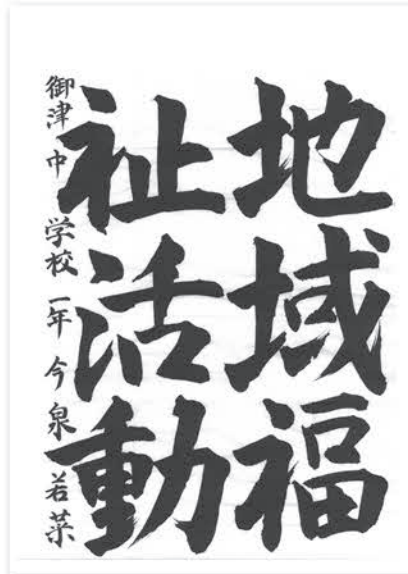 地域福
祉活動
御津中学校一年今泉若菜